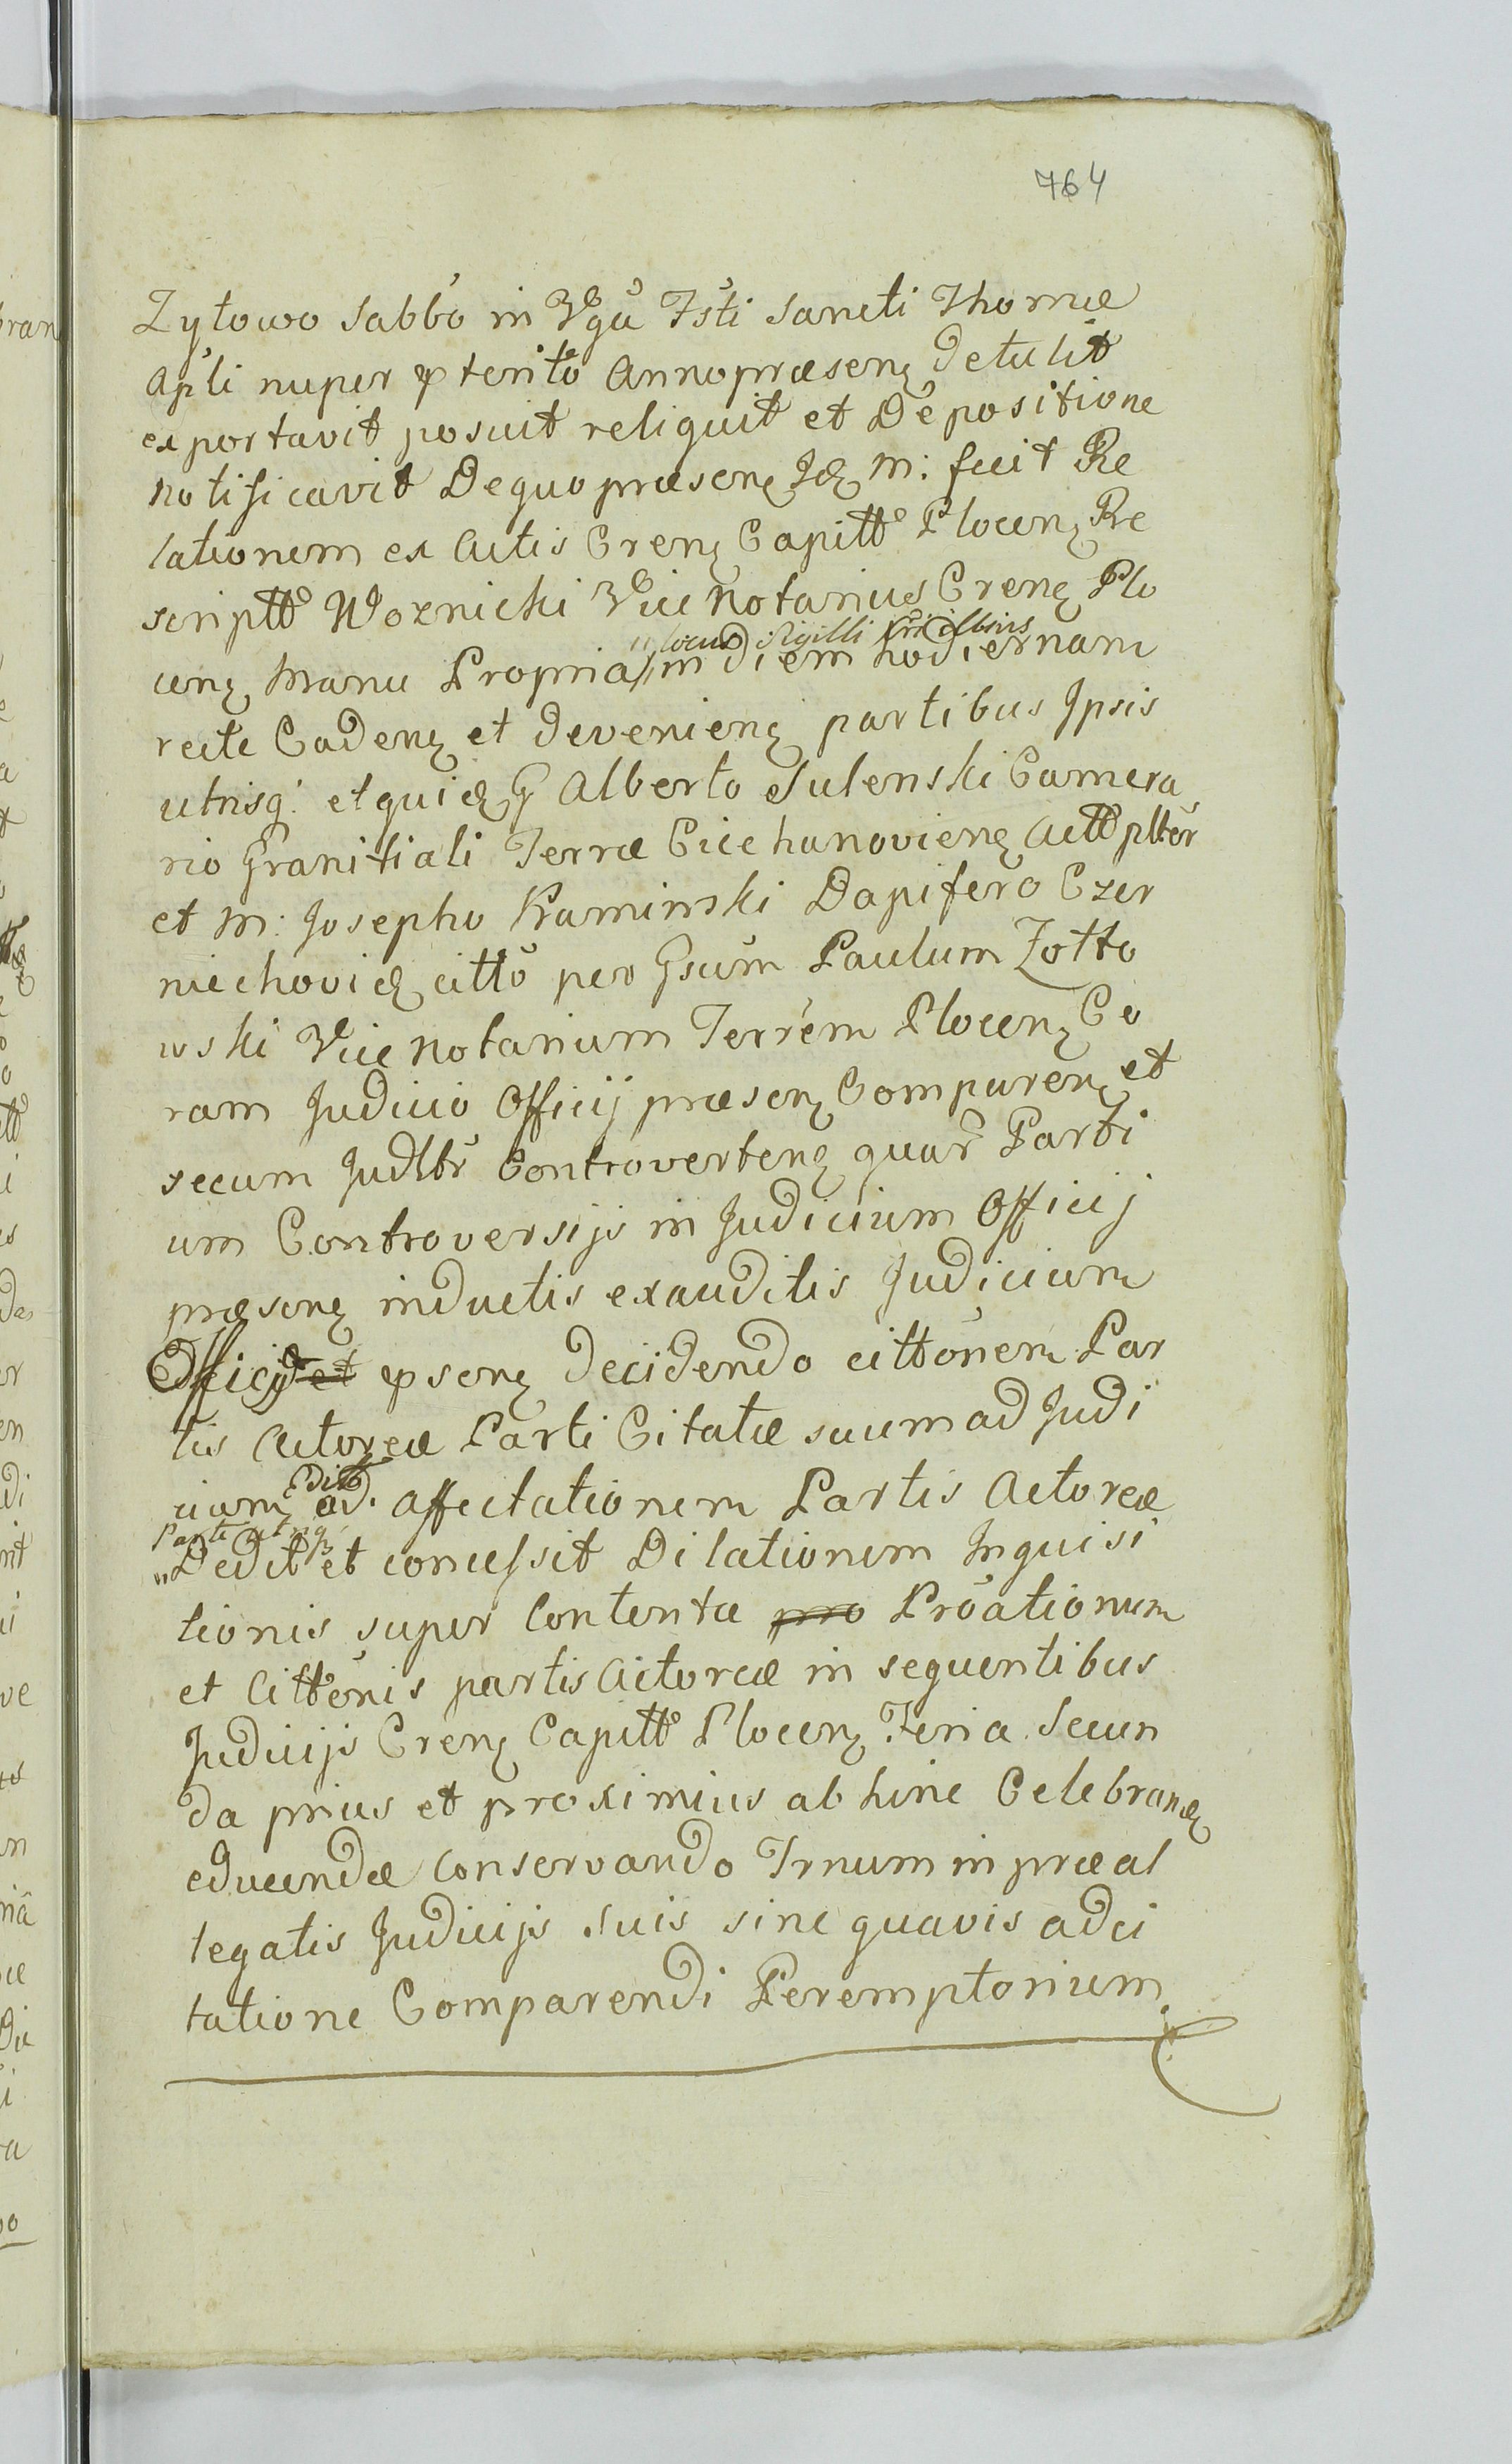 764
Zytowo Sabbo in Vga Fsti Sancti Thomæ
Apli nuper pterito Anno præsenę detulit
exportavit posuit reliquit et De positione
notificavit De quo præsenę Idę M: fecit Re
lationem ex Actis Crenę Capitt Plocenę Re
scriptt Woznicki Vice Notarius Crenę Plo
„locus Sigilli
cenę Manu Propria/in diem hodiernam
recte Cadenę et devenienę partibus Ipsis
utrisq: et quidę G Alberto Sulenski Camera
rio Granitiali Terræ Ciechanovienę Actt plter
et M: Josepho Kaminski Dapifero Czer
niechovię citto per Gsum Paulum Zotto
wski Vice Notarium Terrem Plocenę Co
ram Judicio Officij præsenę Comparenę et
secum Judltr Controvertenę quar Parti
um Controversijs in Judicium Officij
præsenę inductis exauditis Judicium
Officij et psenę decidendo cittonem Par
tis Actoreæ Parti Citatæ suum ad Judi
Edit
cium ad. affectationem Partis Actoreæ
Parti utriq;
„Dedit et concessit Dilationem Inquisi
tionis super Contenta pro Proationum
et Cittonis partis Actoreæ in sequentibus
Judicijs Crenę Capitt Plocenę Feria Secun
da prius et proximius ab hinc Celebranę
educendæ Conservando Trnum in præal
legatis Judicijs suis sine quavis adci
tatione Comparendi Peremptorium